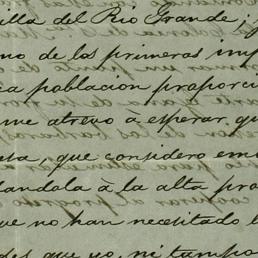 illa del Rio Grande;
no de los primeros imp
ea poblacion proporci
me atrevo à esperar qu
sta, que considero emi
dandola à la alta pro
ue no han necesitado l
des que yo, ni tampo